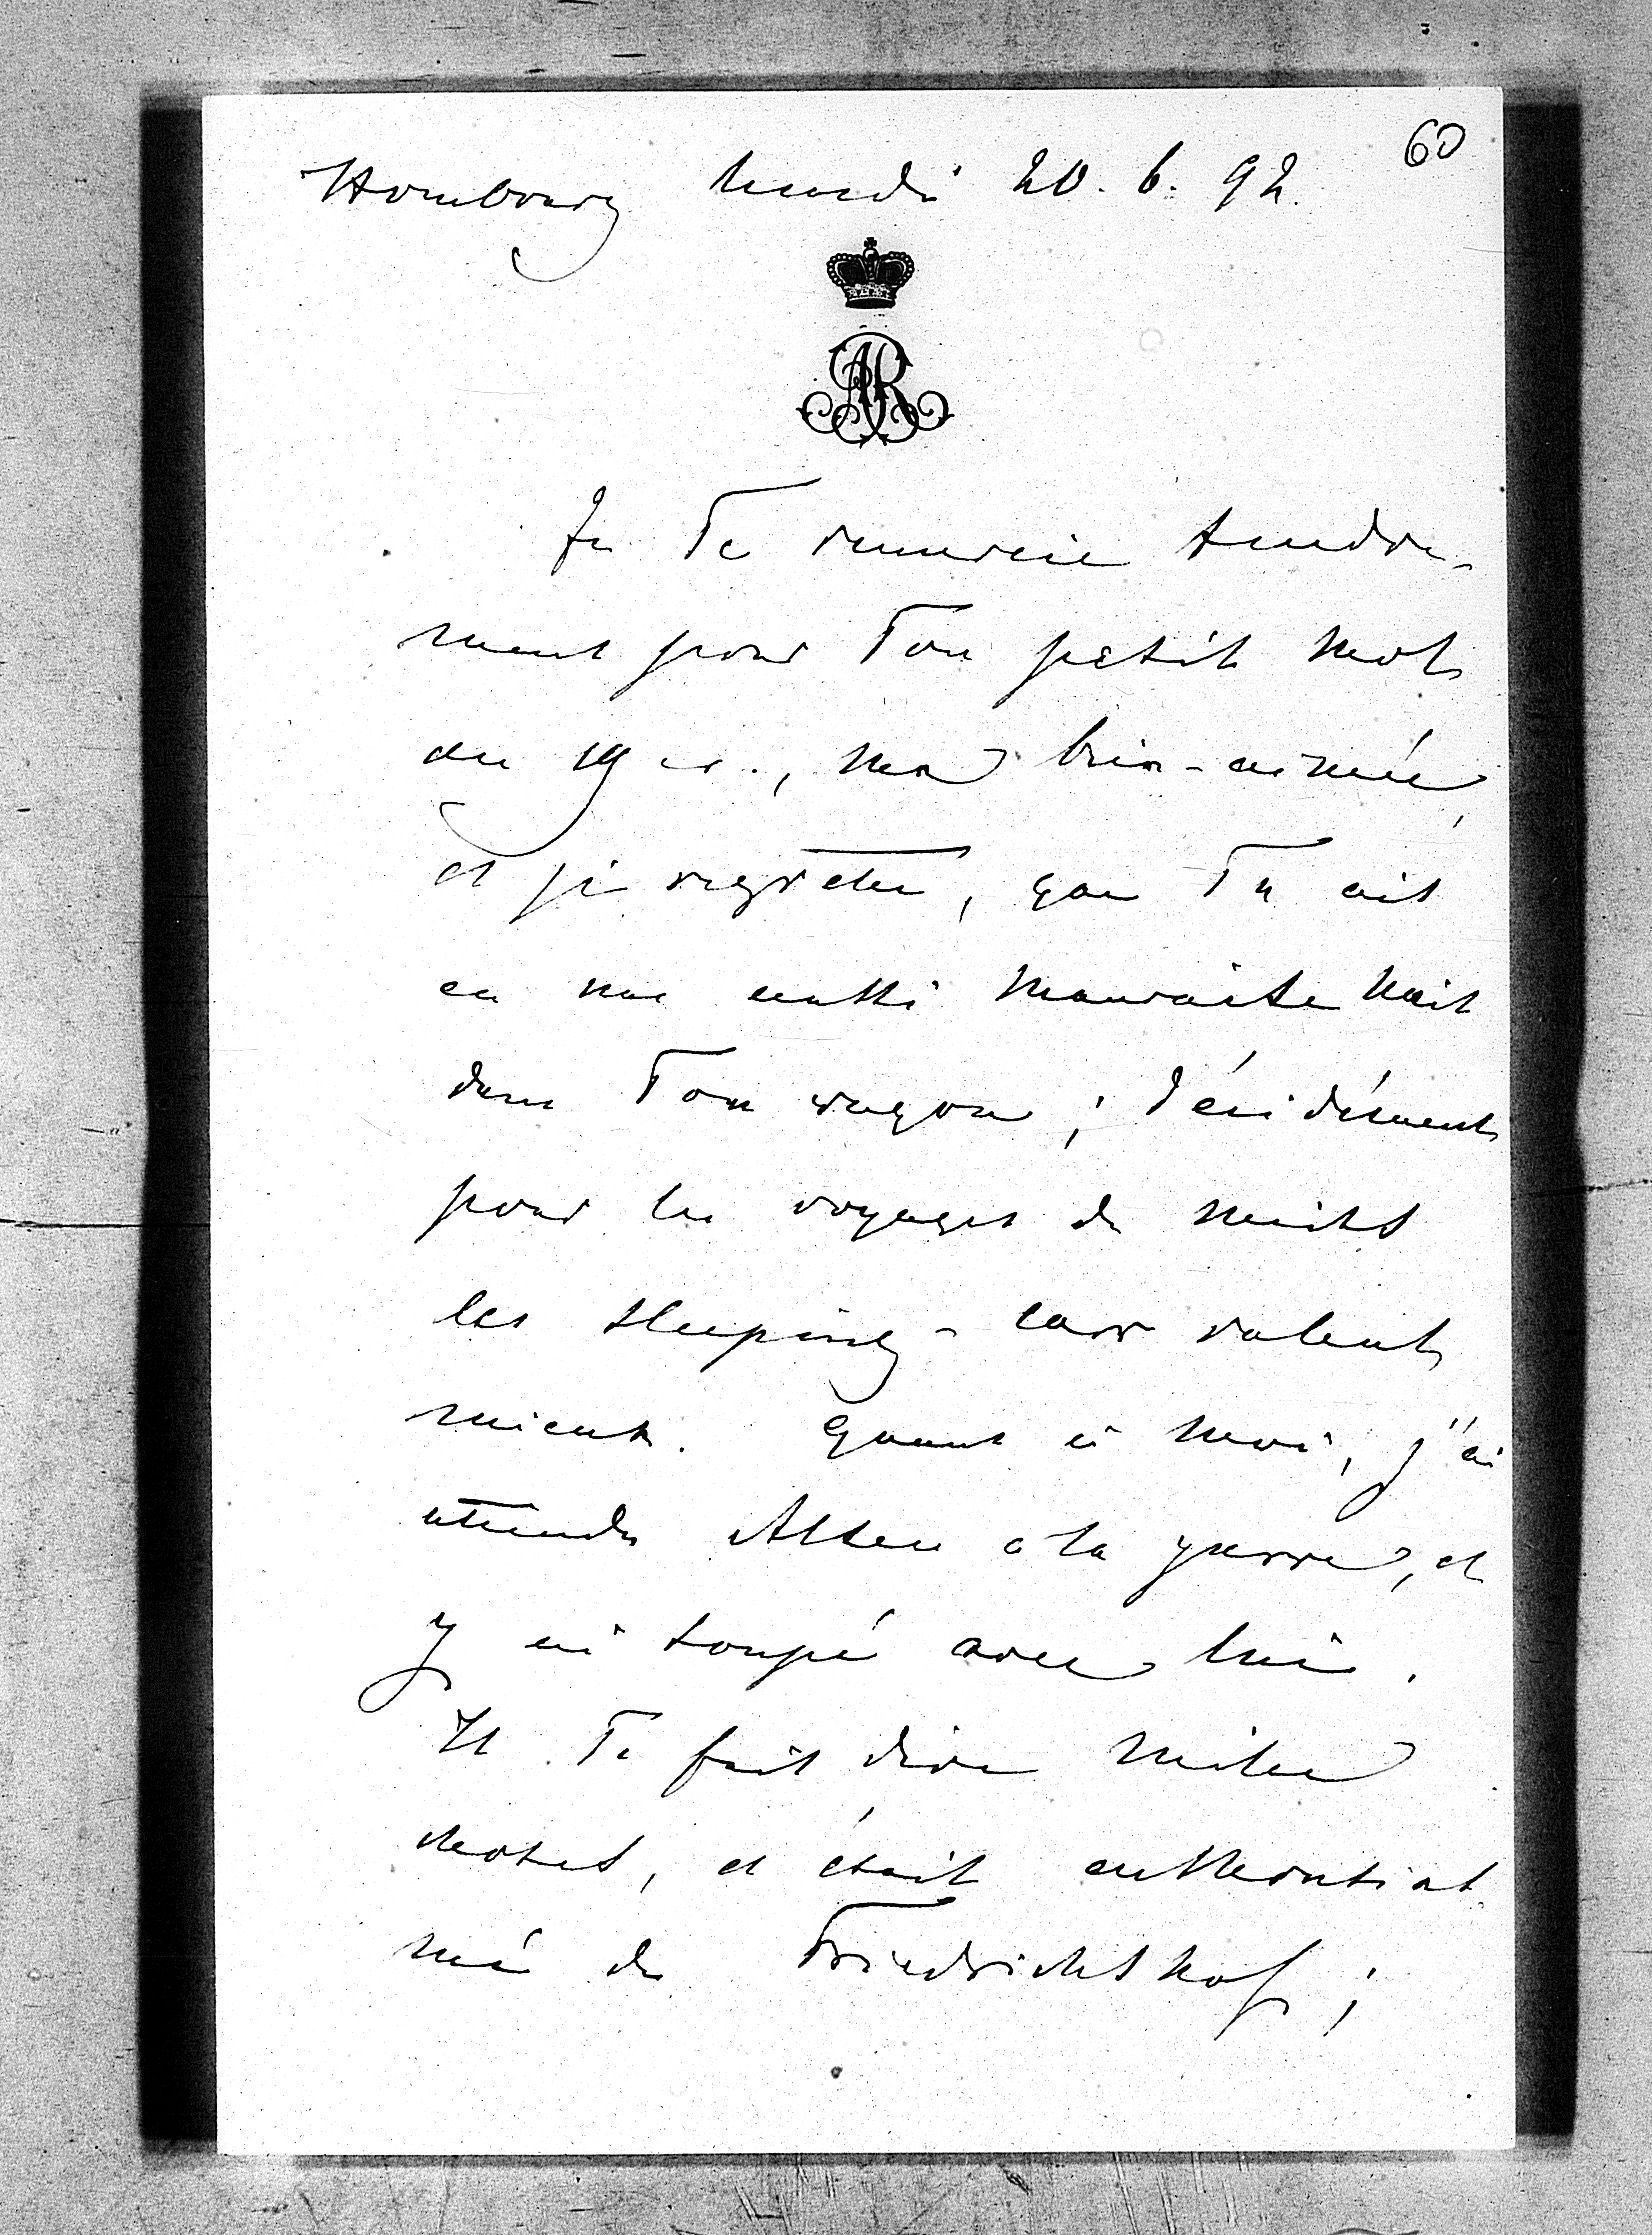 60
Hombourg lundi 20. 6. 92.
AR
Je Te remercie tendre-
ment pour Ton petit mot
du 19 cr., ma bien-aimée,
et je regrette, que Tu ais
eu une aussi mauvaise nuit
dans Ton wagon; décidément
pour les voyages de nuit
les sleeping-cars valent
mieux. Quant à moi, j'ai
attendu à la guerre, et
y ai soupé avec lui.
Il Te fait dire mille
choses, et était enthousias
mé de Friedrichshof;